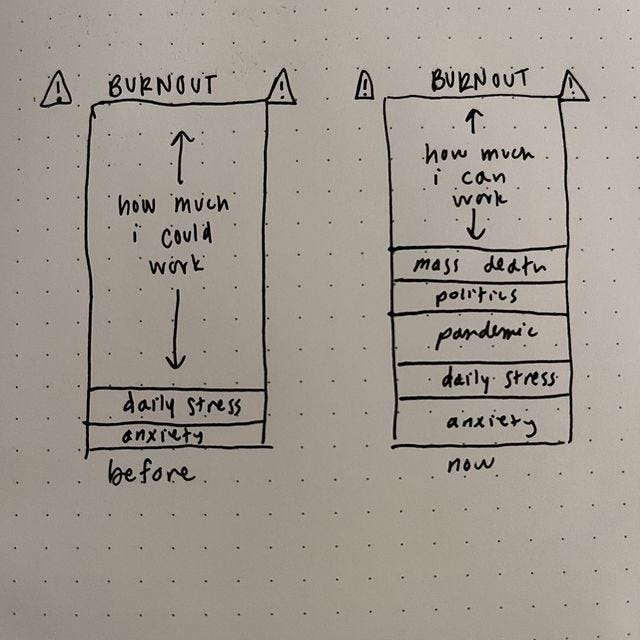 BURNOUT
how much
i could
work
daily stress
anxiety
before
BURNOUT
how much
i can
work
mass death
politics
pandemic
daily stress
anxiety
now